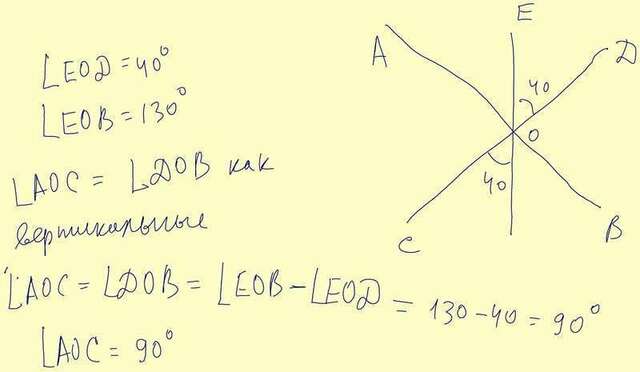 ∠EOD = 40°
∠EOB = 130°
∠AOC = ∠DOB как
вертикальные
∠AOC = ∠DOB = ∠EOB - ∠EOD = 130 - 40 = 90°
∠AOC = 90°
E
A
D
40
O
40
C
B